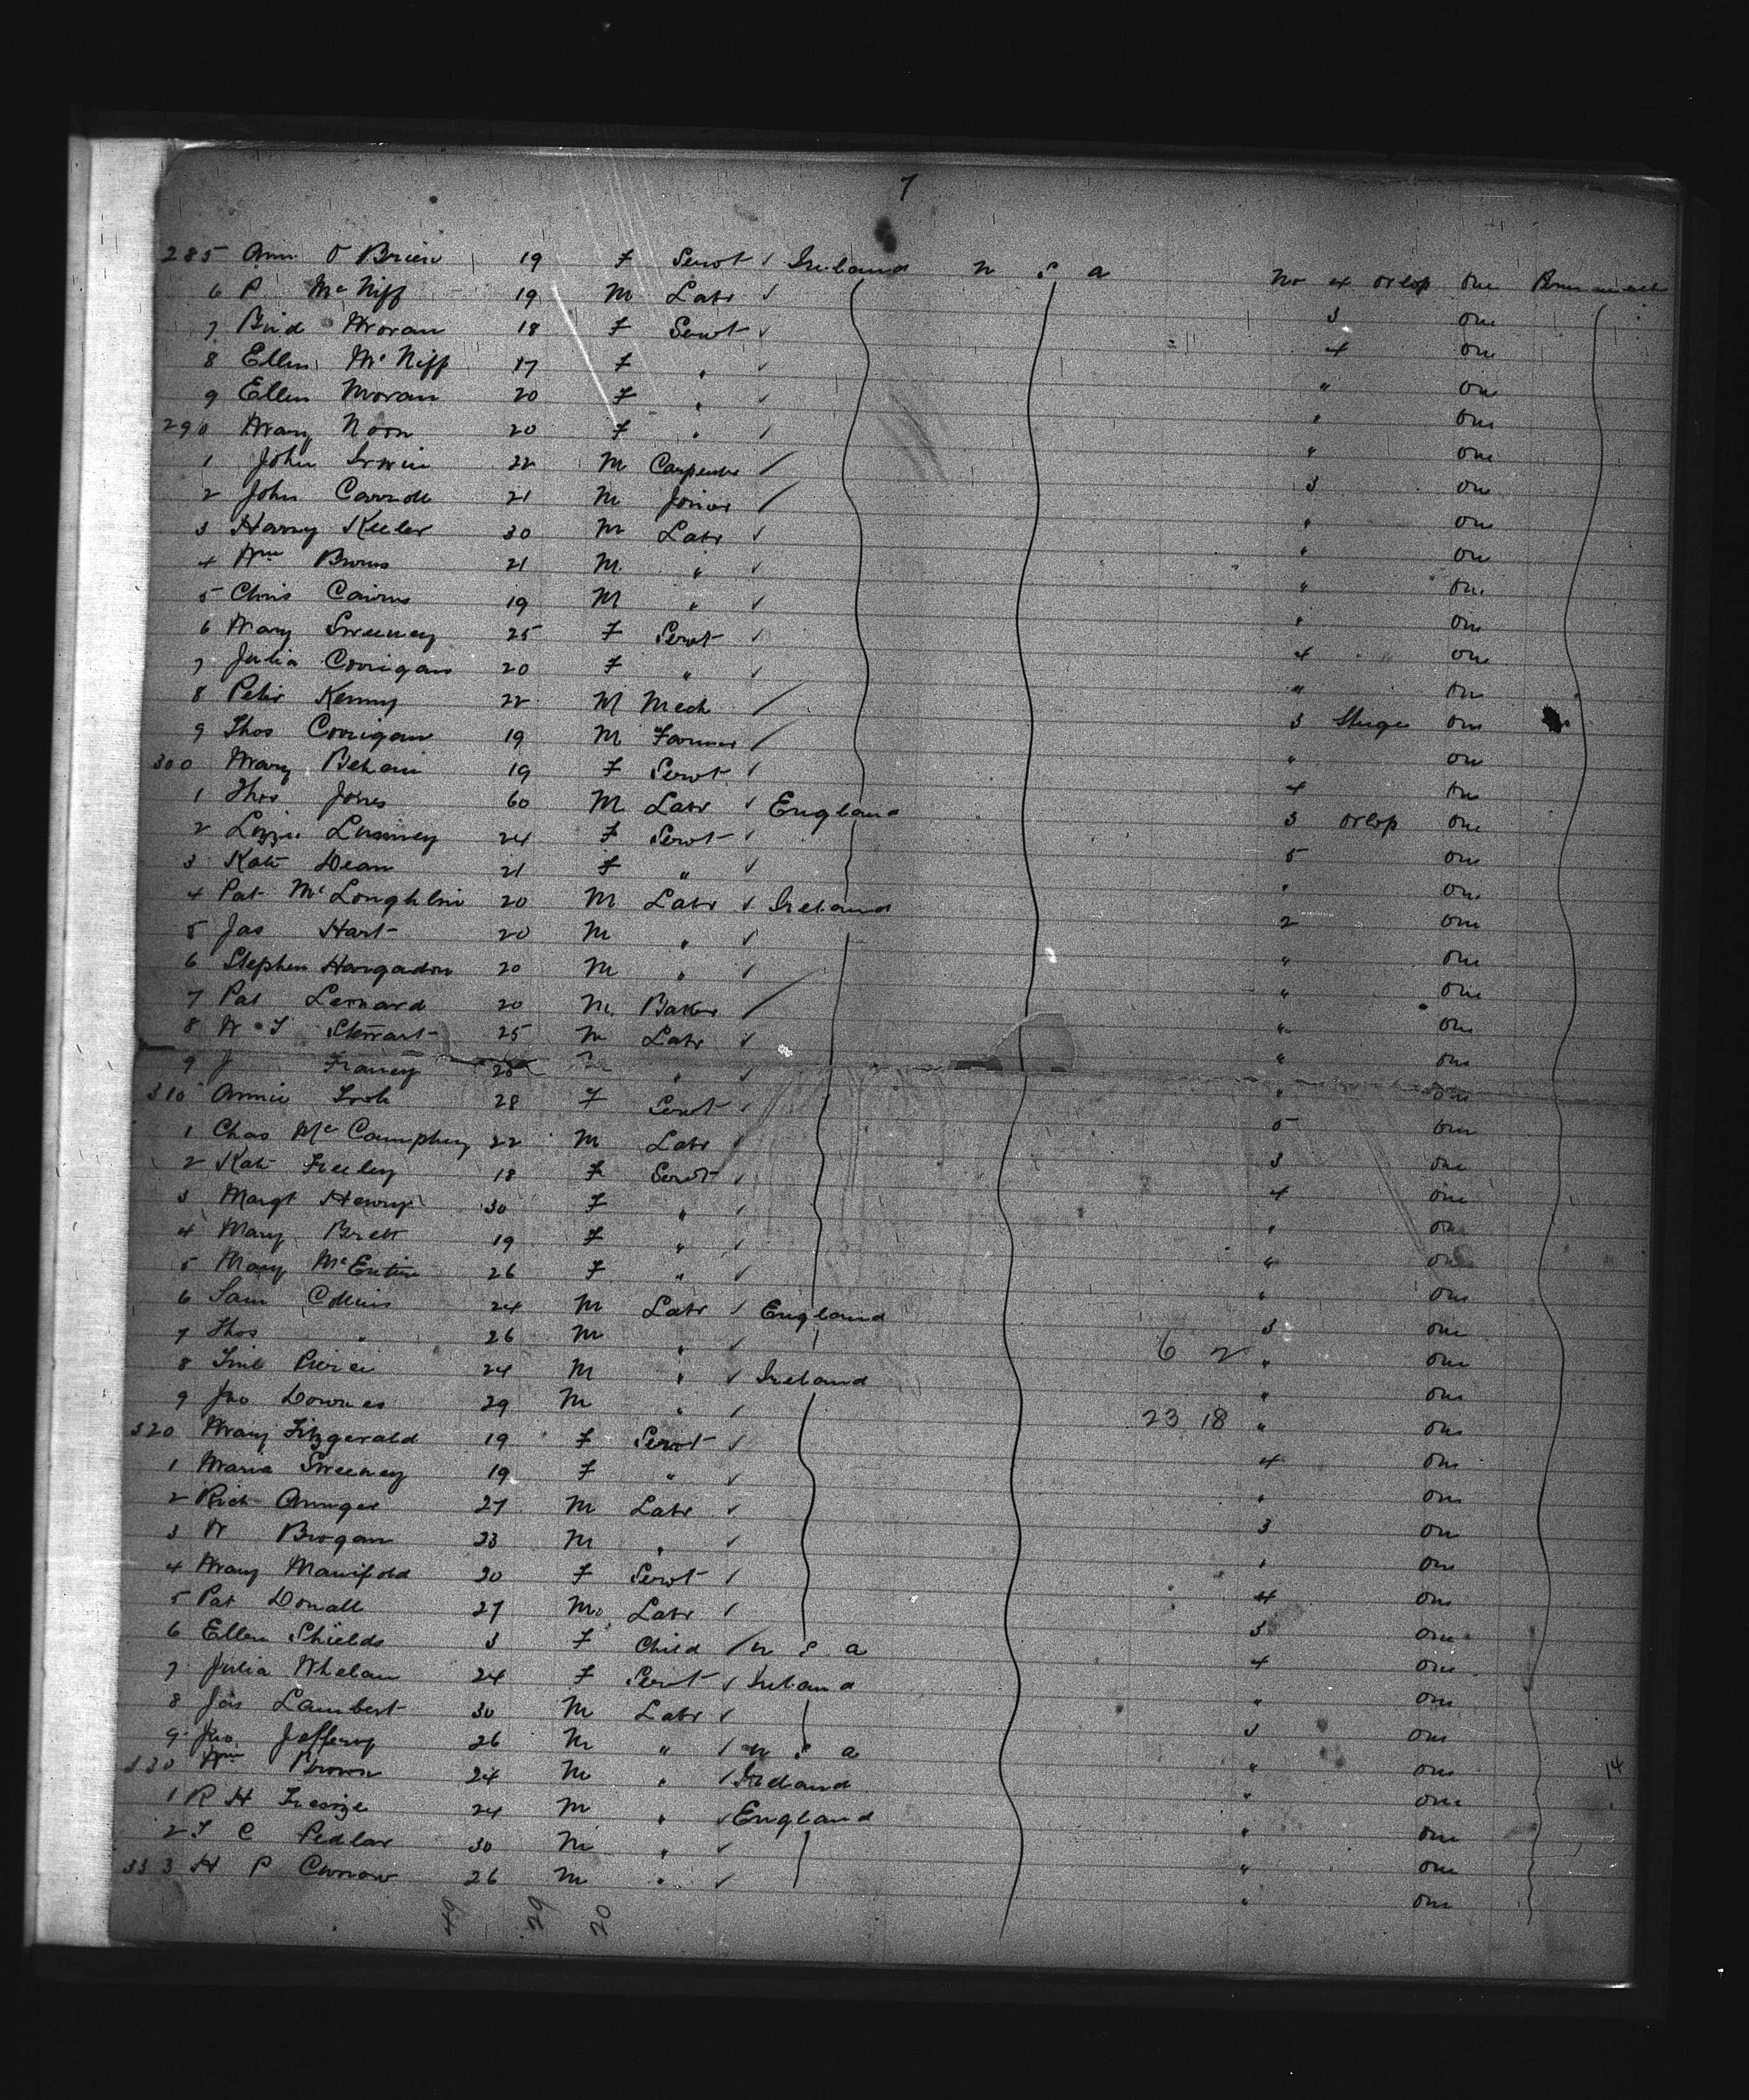 7
285 Ann O Brien 19 F Servt ✓ Ireland U S A No 4 orlop one
6 P McNiff 19 M Labr ✓ 3 one
7 Brid Moran 18 F Servt ✓ 4 one
8 Ellen McNiff 17 F " ✓ " one
9 Ellen Moran 20 F " ✓ " one
290 Mary Noon 20 F " / " one
1 John Irwin 22 M Carpenter / 3 one
2 John Carroll 21 M Joiner / " one
3 Harry Keeler 30 M Labr ✓ " one
4 Wm Burns 21 M " ✓ " one
5 Chris Cairns 19 M " ✓ " one
6 Mary Sweeney 25 F Servt ✓ 4 one
7 Julia Corrigan 20 F " ✓ " one
8 Peter Kenny 22 M Mech / 3 Steerge one
9 Thos Corrigan 19 M Farmer / " one
300 Mary Behan 19 F Servt ✓ 4 one
1 Thos Jones 60 M Labr ✓ England 3 orlop one
2 Lizzie 24 F Servt ✓ 5 one
3 Kate Dean 21 F " ✓ " one
4 Pat McLoughlin 20 M Labr ✓ Ireland 2 one
5 Jas Hart 20 M " ✓ " one
6 Stephen Hargadon 20 M " ✓ " one
7 Pat Leonard 20 M Baker / " one
8 W J Stewart 25 M Labr ✓ " one
9 J Franey 20 M " ✓ " one
310 Annie 28 F Servt ✓ 5 one
1 Chas McCamphey 22 M Labr ✓ 3 one
2 Kate Freeley 18 F Servt ✓ 4 one
3 Margt Henry 30 F " ✓ " one
4 Mary Brett 19 F " ✓ " one
5 Mary McEntire 26 F " ✓ " one
6 Sam Collins 24 M Labr ✓ England 3 one
7 Thos " 26 M " ✓ 6 2 " one
8 Pierce 24 M " ✓ Ireland " one
9 Jno Downes 29 M " ✓ 23 18 " one
320 Mary Fitzgerald 19 F Servt ✓ 4 one
1 Maria Sweeney 19 F " ✓ " one
2 Rich 27 M Labr ✓ 3 one
3 W Brogan 23 M " ✓ " one
4 Mary Manifold 20 F Servt / 4 one
5 Pat Donall 27 M Labr ✓ 3 one
6 Ellen Shields 3 F Child / U S A 4 one
7 Julia Whelan 24 F Servt ✓ Ireland " one
8 Jas Lambert 30 M Labr ✓ 3 one
9 Jno Jeffery 26 M " / U S A " one
330 Wm Brown 24 M " / Ireland " one 14
1 R H Tresize 24 M " ✓ England " one
2 T C Pedlar 30 M " ✓ " one
333 H P Curnow 26 M " ✓ " one
49 29 20